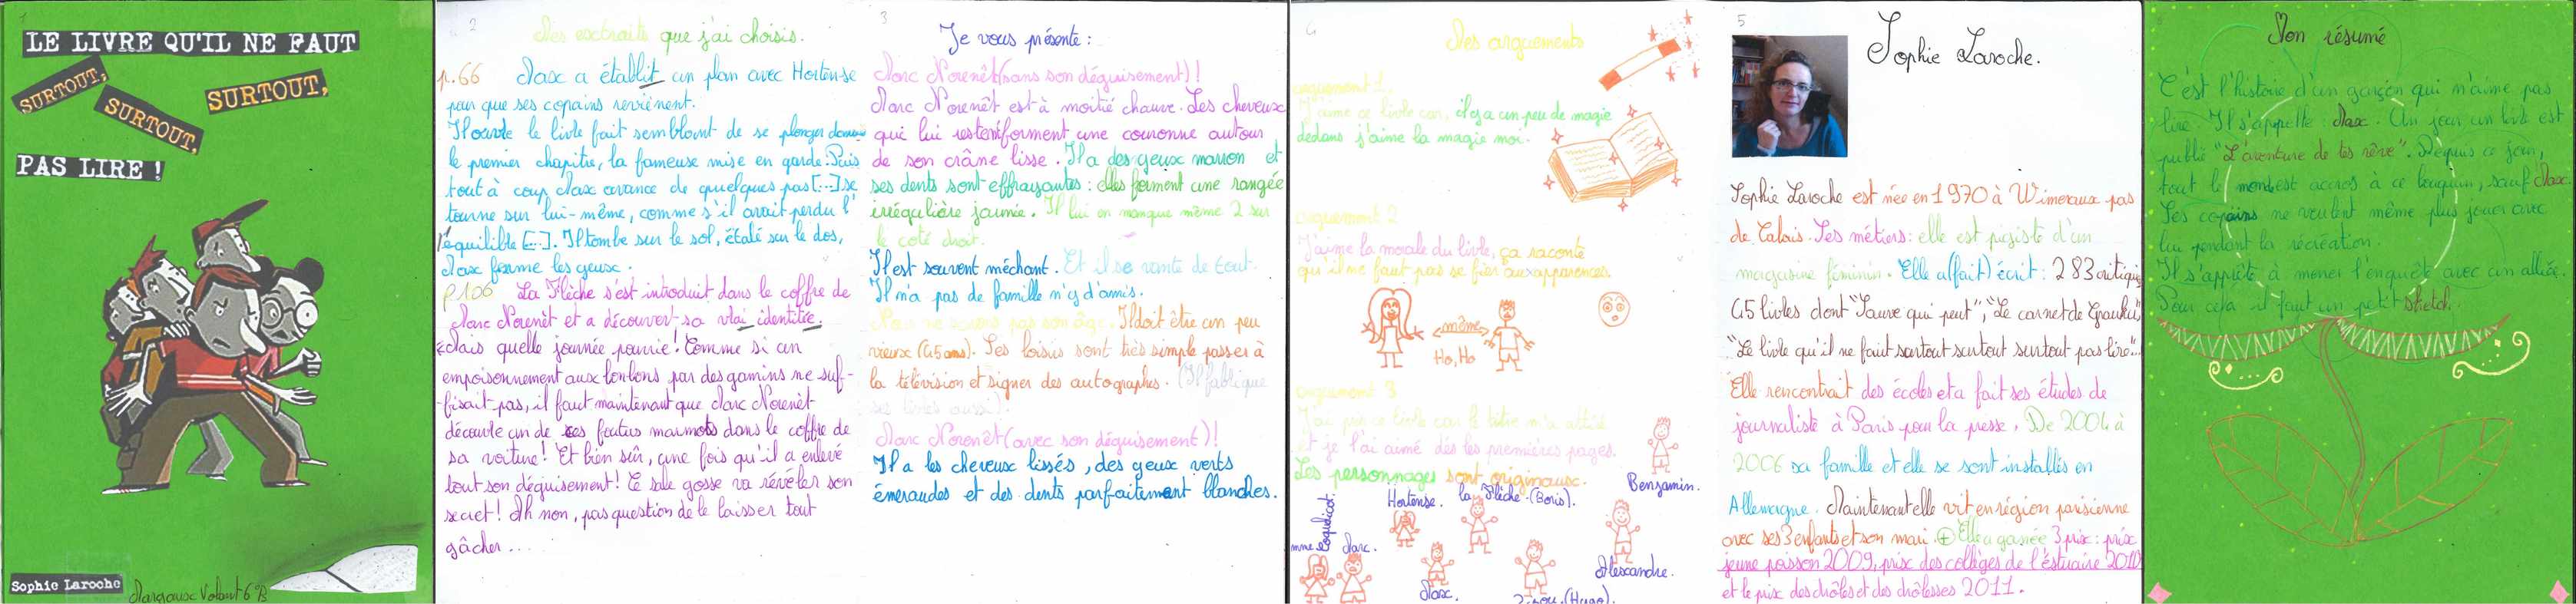 1
LE LIVRE QU'IL NE FAUT
SURTOUT,
SURTOUT,
SURTOUT,
PAS LIRE !
Sophie Laroche
Margaux Volant 6°B
2
Des extraits que j'ai choisis.
p.66 Max a établit un plan avec Hortense
pour que ses copains reviénent.
Il ouvre le livre fait semblant de se plonger dans
le premier chapitre, la fameuse mise en garde. Puis
tout à coup Max avance de quelques pas [...] se
tourne sur lui-même, comme s'il avait perdu l'
équilibre [...]. Il tombe sur le sol, étalé sur le dos,
Max ferme les yeux.
p106 La Flèche s'est introduit dans le coffre de
Marc Norenêt et a découvert sa vrai identitée.
Mais quelle journée pourrie! Comme si un
empoisonnement aux bonbons par des gamins ne suf-
fisait pas, il faut maintenant que Marc Norenêt
découvre un de ces foutus marmots dans le coffre de
sa voiture! Et bien sûr, une fois qu'il a enlevé
tout son déguisement! Ce sale gosse va révéler son
secret! Ah non, pas question de le laisser tout
gâcher...
3
Je vous présente :
Marc Norenêt (sans son déguisement)!
Marc Norenêt est à moitié chauve. Les cheveux
qui lui restent forment une couronne autour
de son crâne lisse. Il a des yeux marron et
ses dents sont effrayantes : elles forment une rangée
irrégulière jaunie. Il lui en manque même 2 sur
le coté droit.
Il est souvent méchant. Et il se vante de tout.
Il n'a pas de famille n'y d'amis.
Nous ne savons pas son âge. Il doit être un peu
vieux (45 ans). Ses loisirs sont très simple passer à
la télévision et signer des autographes. (Il fabrique
ses livres aussi).
Marc Norenêt (avec son déguisement)!
Il a les cheveux lissés, des yeux verts
émeraudes et des dents parfaitement blanches.
4
Mes arguements
arguement 1
J'aime ce livre car, il y a un peu de magie
dedans j'aime la magie moi.
arguement 2
J'aime la morale du livre, ça raconte
qu'il ne faut pas se fier aux apparences.
même
Ho, Ho
arguement 3
J'ai pris ce livre car le titre m'a attiré
et je l'ai aimé dès les premières pages.
Les personnages sont originaux.
Benjamin.
Hortense.
la Flèche (Boris).
Marc.
Max.
Alexandre.
(Hugo).
5
Sophie Laroche.
Sophie Laroche est née en 1970 à Wimereux pas
de Calais. Ses métiers : elle est pigiste d'un
magasine féminin. Elle a (fait) écrit : 283 critiques
45 livres dont "Sauve qui peut", "Le carnet de Grauku",
"Le livre qu'il ne faut surtout surtout surtout pas lire"...
Elle rencontrait des écoles et a fait ses études de
journaliste à Paris pour la presse. De 2004 à
2006 sa famille et elle se sont installés en
Allemagne. Maintenant elle vit en région parisienne
avec ses 3 enfants et son mari. ⊕ Elle a gagnée 3 prix : prix
jeune poisson 2009, prix des collèges de l'éstuaire 2010
et le prix des drôles et des drôlesses 2011.
Mon résumé
C'est l'histoire d'un garçon qui n'aime pas
lire. Il s'appelle : Max. Un jour, un livre est
publié "L'aventure de tes rêve". Depuis ce jour,
tout le monde est accros à ce bouquin, sauf Max.
Ses copains ne veulent même plus jouer avec
lui pendant la récréation.
Il s'apprête à mener l'enquête avec un alliée.
Pour cela il faut un petit sketch.